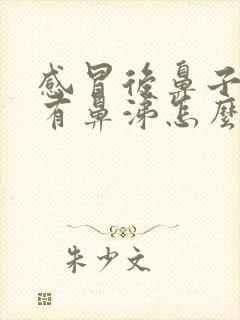 感冒後鼻子
有鼻涕怎麼
朱少文